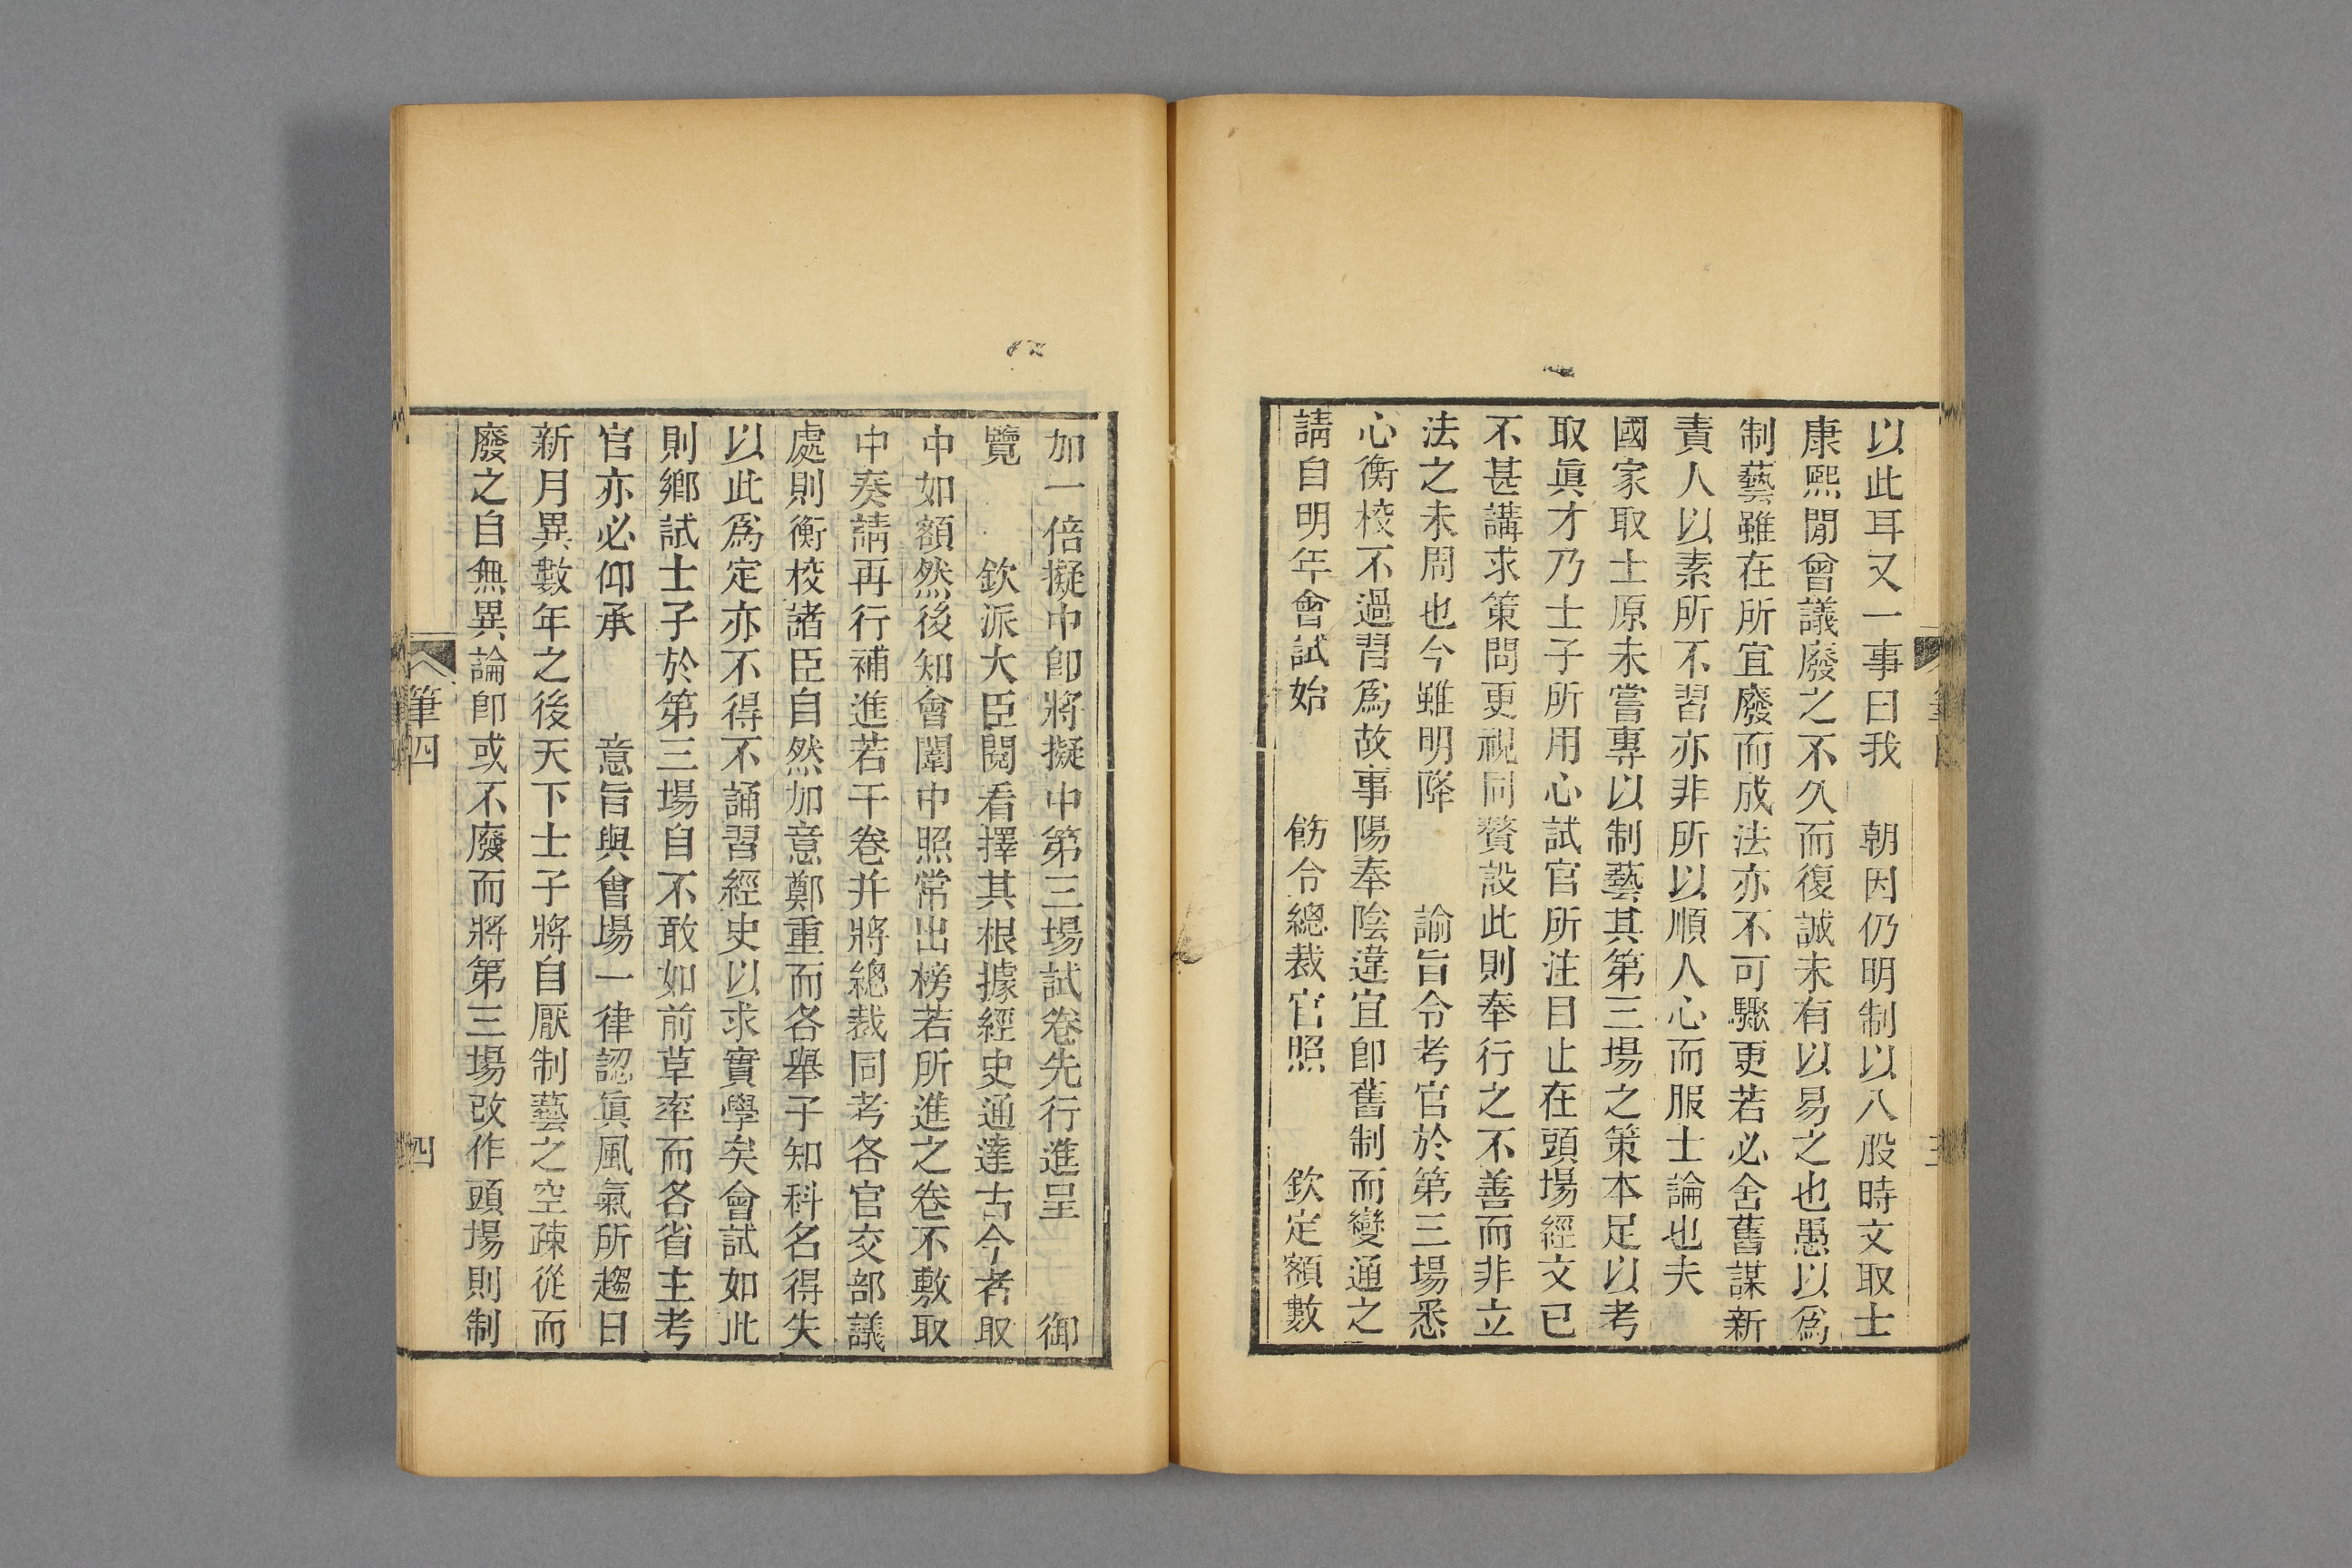 以此耳又一事曰我　朝因仍明制以八股時文取士
康熙閒曾議廢之不久而復誠未有以易之也愚以爲
制藝雖在所宜廢而成法亦不可驟更若必舍舊謀新
責人以素所不習亦非所以順人心而服士論也夫
國家取士原未嘗專以制藝其第三場之策本足以考
取眞才乃士子所用心試官所注目止在頭場經文已
不甚講求策問更視同贅設此則奉行之不善而非立
法之未周也今雖明降　諭旨令考官於第三場悉
心衡校不過習爲故事陽奉陰違宜卽舊制而變通之
請自明年會試始　飭令總裁官照　欽定額數
加一倍擬中卽將擬中第三場試卷先行進呈　御
覽　欽派大臣閱看擇其根據經史通達古今者取
中如額然後知會闈中照常出榜若所進之卷不敷取
中奏請再行補進若干卷并將總裁同考各官交部議
處則衡校諸臣自然加意鄭重而各舉子知科名得失
以此爲定亦不得不誦習經史以求實學矣會試如此
則鄉試士子於第三場自不敢如前草率而各省主考
官亦必仰承　意旨與會場一律認眞風氣所趨日
新月異數年之後天下士子將自厭制藝之空疎從而
廢之自無異論卽或不廢而將第三場改作頭場則制
筆四
四